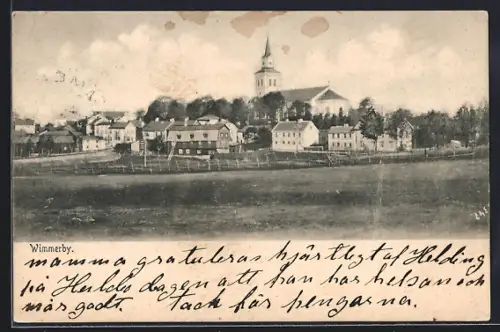 Wimmerby.
mamma gratuleras hjärtligt af Helding
på Huldas dagen att han har helsan och
mår godt. Tack för pengarna.